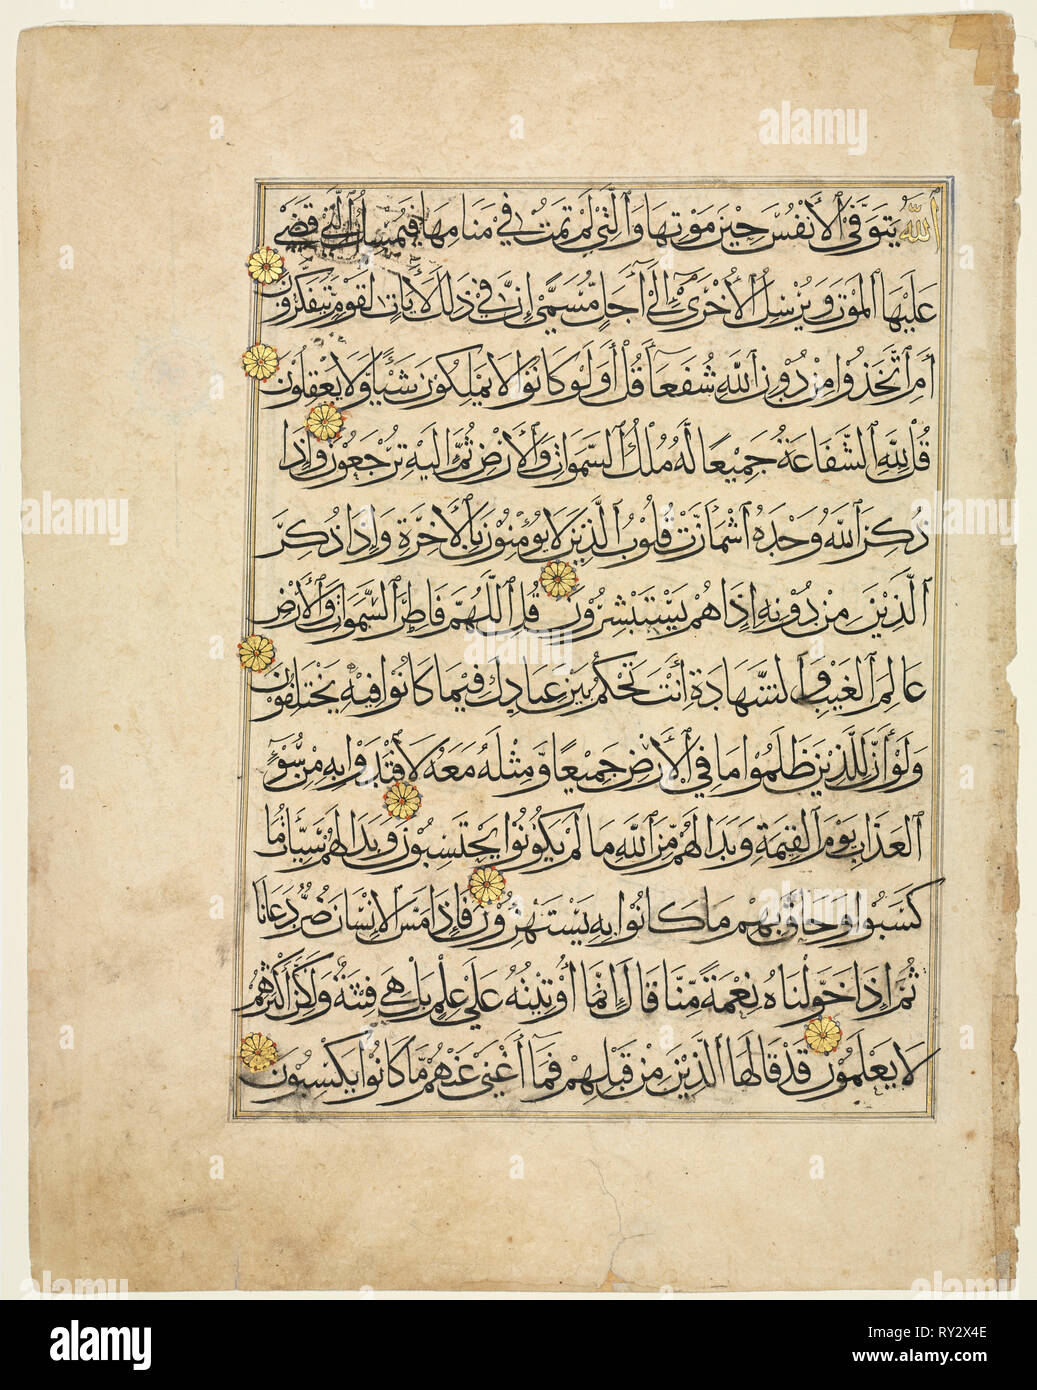 ٱللَّهُ يَتَوَفَّى ٱلْأَنْفُسَ حِينَ مَوْتِهَا وَٱلَّتِي لَمْ تَمُتْ فِي مَنَامِهَا فَيُمْسِكُ ٱلَّتِي قَضَى
عَلَيْهَا ٱلْمَوْتَ وَيُرْسِلُ ٱلْأُخْرَىٰ إِلَىٰ أَجَلٍ مُّسَمًّى إِنَّ فِي ذَٰلِكَ لَآيَاتٍ لِقَوْمٍ يَتَفَكَّرُونَ
أَمِ ٱتَّخَذُوا مِنْ دُونِ ٱللَّهِ شُفَعَآءَ قُلْ أَوَلَوْ كَانُوا لَا يَمْلِكُونَ شَيْئًا وَلَا يَعْقِلُونَ
قُلْ لِلَّهِ ٱلشَّفَاعَةُ جَمِيعًا لَهُ مُلْكُ ٱلسَّمَوَاتِ وَٱلْأَرْضِ ثُمَّ إِلَيْهِ تُرْجَعُونَ وَإِذَا
ذُكِرَ ٱللَّهُ وَحْدَهُ ٱشْمَأَزَّتْ قُلُوبُ ٱلَّذِينَ لَا يُؤْمِنُونَ بِٱلْآخِرَةِ وَإِذَا ذُكِرَ
ٱلَّذِينَ مِنْ دُونِهِ إِذَا هُمْ يَسْتَبْشِرُونَ قُلِ ٱللَّهُمَّ فَاطِرَ ٱلسَّمَوَاتِ وَٱلْأَرْضِ
عَالِمَ ٱلْغَيْبِ وَٱلشَّهَادَةِ أَنْتَ تَحْكُمُ بَيْنَ عِبَادِكَ فِيمَا كَانُوا فِيهِ يَخْتَلِفُونَ
وَلَوْ أَنَّ لِلَّذِينَ ظَلَمُوا مَا فِي ٱلْأَرْضِ جَمِيعًا وَمِثْلَهُ مَعَهُ لَافْتَدَوْا بِهِ مِنْ سُوءِ
ٱلْعَذَابِ يَوْمَ ٱلْقِيمَةِ وَبَدَا لَهُمْ مِّنَ ٱللَّهِ مَا لَمْ يَكُونُوا يَحْتَسِبُونَ وَبَدَا لَهُمْ سَيِّئَاتُ مَا
كَسَبُوا وَحَاقَ بِهِمْ مَا كَانُوا بِهِ يَسْتَهْزِؤُنَ فَإِذَا مَسَّ ٱلْإِنْسَانَ ضُرٌّ دَعَانَا
ثُمَّ إِذَا خَوَّلْنَاهُ نِعْمَةً مِّنَّا قَالَ إِنَّمَا أُوتِيتُهُ عَلَى عِلْمٍ بَلْ هِيَ فِتْنَةٌ وَلَكِنَّ أَكْثَرَهُمْ
لَا يَعْلَمُونَ قَدْ قَالَهَا ٱلَّذِينَ مِنْ قَبْلِهِمْ فَمَآ أَغْنَى عَنْهُمْ مَّا كَانُوا يَكْسِبُونَ
alamy
Image ID: RY2X4E
www.alamy.com